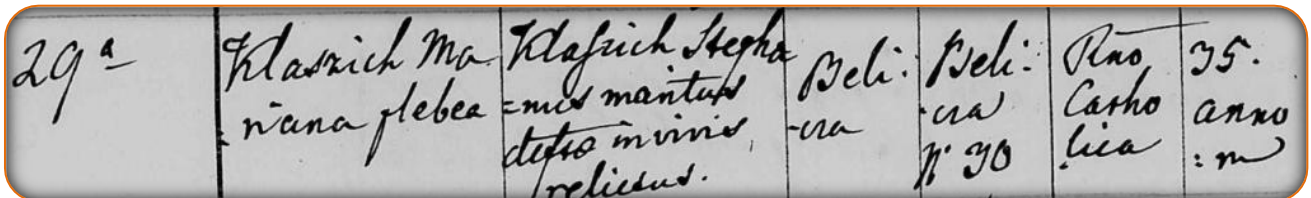 29ª
Klasnich Ma
riana plebea
Klasnich Stepha
=nus maritus
in vivis
relictus.
Beli:
-cza
Beli:
-cza
Nº 30
Rno
Catho
lica
35.
anno
:m